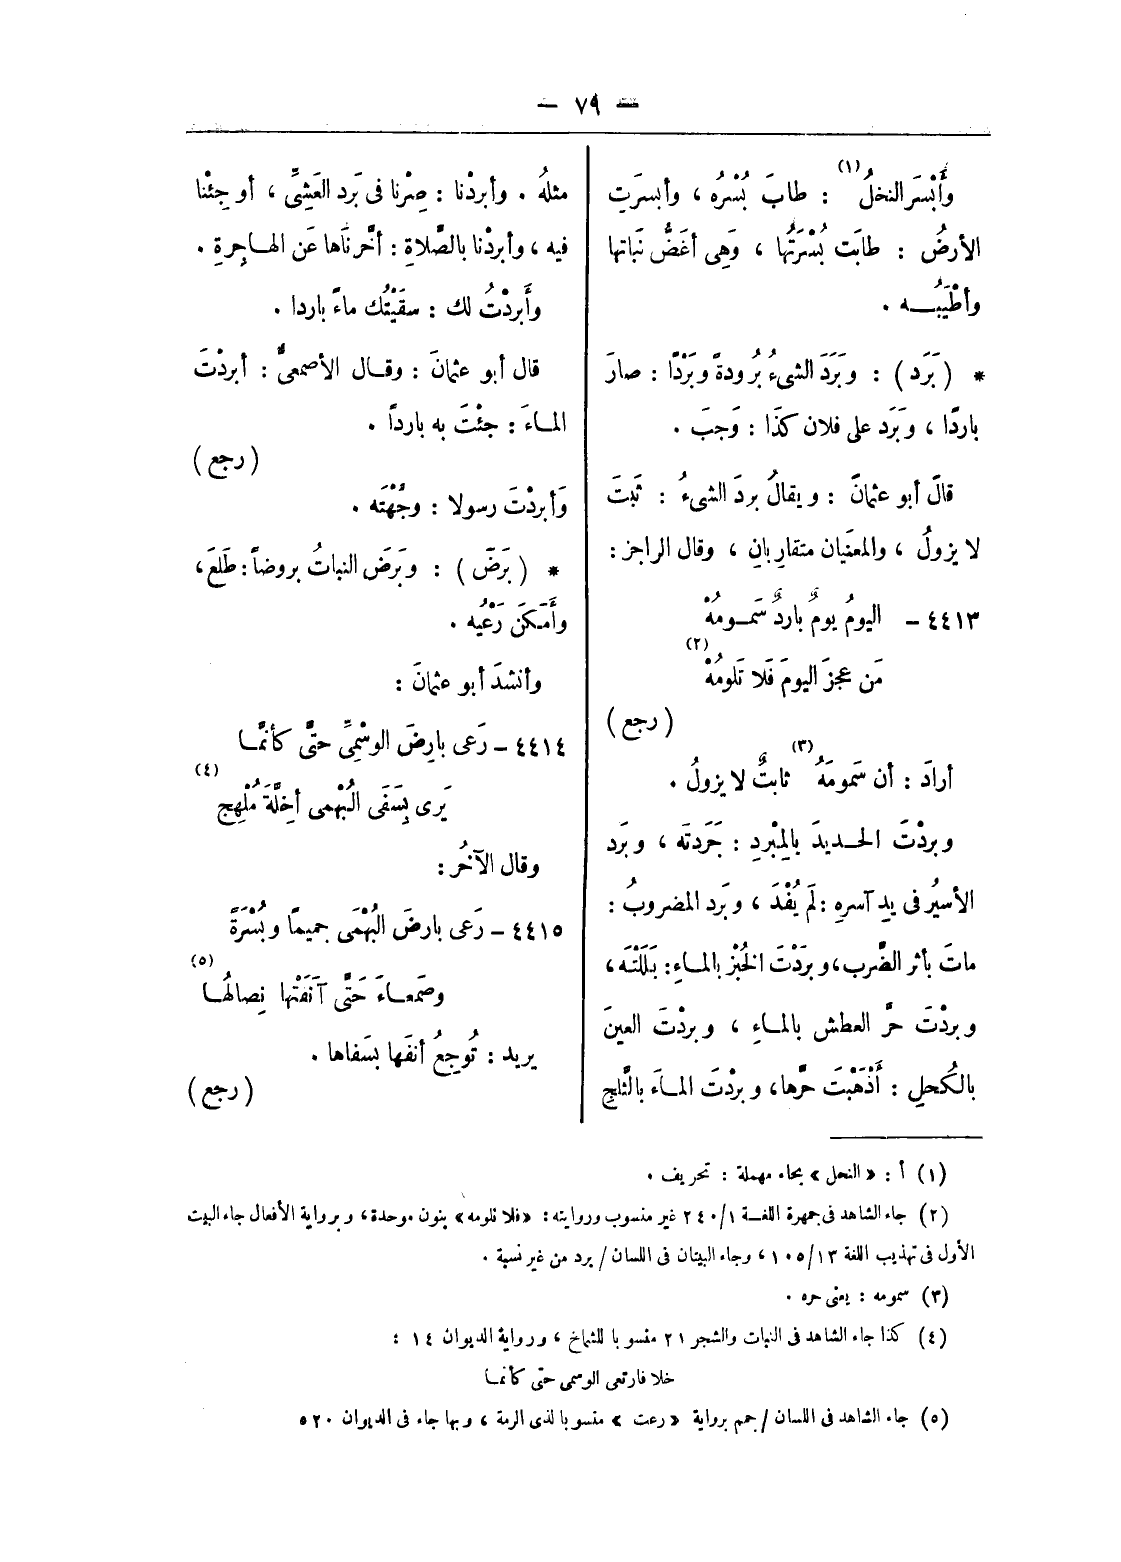 — ٧٩ —
وأَبْسَرَ النخلُ (١) : طابَ بُسْرُه ، وأبسرَتِ
الأرضُ : طابَت بُسْرَتُها ، وَهِى أغَضُّ نَباتها
وأطْيَبُـــه .
* ( بَرَد ) : وبَرَدَ الشىءُ بُرُودةً وبَرْدًا : صارَ
باردًا ، وبَرَد على فلان كذَا : وَجبَ .
قالَ أبو عثمانَ : ويقالُ بردَ الشىءُ : ثَبتَ
لا يزولُ ، والمعنَيان متقارِبانِ ، وقال الراجز :
٤٤١٣ – اليومُ يومٌ باردٌ سَمـومُهْ
مَن عجزَ اليومَ فَلا تَلومُهْ (٢)
( رجع )
أرادَ : أن سَمومَهُ (٣) ثابتٌ لا يزولُ .
وبردْتَ الحـديدَ بالمِبْردِ : جَرَدتَه ، وبَرَد
الأسيُر فى يدِ آسرِهِ : لَم يُفْدَ ، وبَرَد المضروبُ :
ماتَ بأثر الضَّرب، وبرَدْتَ الخبْز بالمـاءِ : بلَلْتَـه ،
وبردْتَ حرَّ العطش بالمـاءِ ، وبردْتَ العينَ
بالكُحلِ : أَذْهَبْتَ حرَّها، وبردْتَ المـاءَ بالثَّلجِ
مثلهُ . وأبردْنا : صِرْنا فى بَرد العَشِىِّ ، أو جِئْنا
فيه ، وأبردْنا بالصَّلاةِ : أخَّرنَاها عَن الهـاجِرةِ .
وأَبردْتُ لك : سقَيْتُك ماءً باردا .
قال أبو عثمانَ : وقــال الأصمعىُّ : أبردْتَ
المـاءَ : جئْتَ به باردًا .
( رجع )
وَأبردْتَ رسولا : وجَّهْتَه .
* ( بَرَضَ ) : وبَرَض النباتُ بروضاً : طَلَعَ ،
وأَمْـكَنَ رَعْيُه .
وأنشدَ أبو عثمانَ :
٤٤١٤ – رَعى بارِضَ الوسْمِىِّ حتَّى كأنَّمـا
يَرى بِسَفَى البُهْمى أخِلَّةَ مُلْهِج (٤)
وقال الآخرُ :
٤٤١٥ – رَعى بارضَ البُهْمَى جميمًا وبُسْرَةً
وصَمعـاءَ حَتَّى آنَفَتْها نِصالُهـا (٥)
يريد : تُوجِعُ أنفَها بسَفاها .
( رجع )
(١) أ : « النحل » بحاء مهملة : تحريف .
(٢) جاء الشاهد فى جمهرة اللغــة ٢٤٠/١ غير منسوب وروايته : «فلا تلومه» بنون موحدة، وبرواية الأفعال جاء البيت
الأول فى تهذيب اللغة ١٠٥/١٣ ، وجاء البيتان فى اللسان / برد من غير نسبة .
(٣) سمومه : يعنى حره .
(٤) كذا جاء الشاهد فى النبات والشجر ٢١ منسوبا للشماخ ، ورواية الديوان ١٤ :
خلا فارتعى الوسمى حتى كأنمـا
(٥) جاء الشاهد فى اللسان / جمم برواية « رعت » منسوبا لذى الرمة ، وبها جاء فى الديوان ٥٢٠